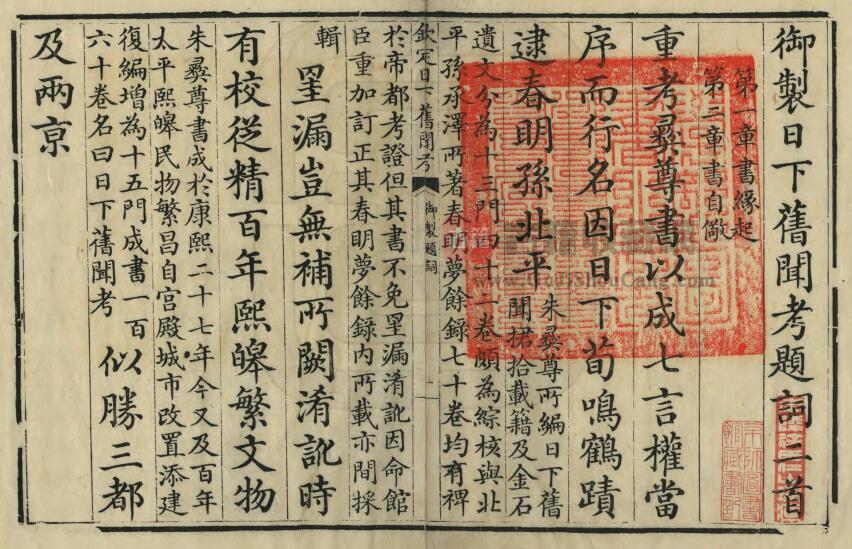 御製日下舊聞考題詞二首
第一章書縁起
第二章書自儆
重考彝尊書以成七言權當
序而行名因日下荀鳴鶴蹟
逮春明孫北平
朱彝尊所編日下舊
聞捃拾載籍及金石
遺文分為十三門四十二卷頗為綜核與北
平孫承澤所著春明夢餘録七十卷均有禆
欽定日下舊聞考
御製題詞
一
於帝都考證但其書不免罣漏淆訛因命館
臣重加訂正其春明夢餘録内所載亦間採
輯
罣漏豈無補所闕淆訛時
有校從精百年熙皡繁文物
朱彝尊書成於康熙二十七年今又及百年
太平熙皡民物繁昌自宫殿城市改置添建
復編增為十五門成書一百
六十卷名曰日下舊聞考
似勝三都
及兩京